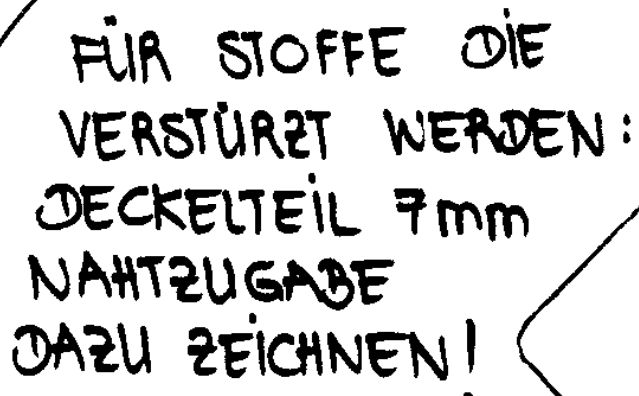 FÜR STOFFE DIE
VERSTÜRZT WERDEN:
DECKELTEIL 7mm
NAHTZUGABE
DAZU ZEICHNEN!